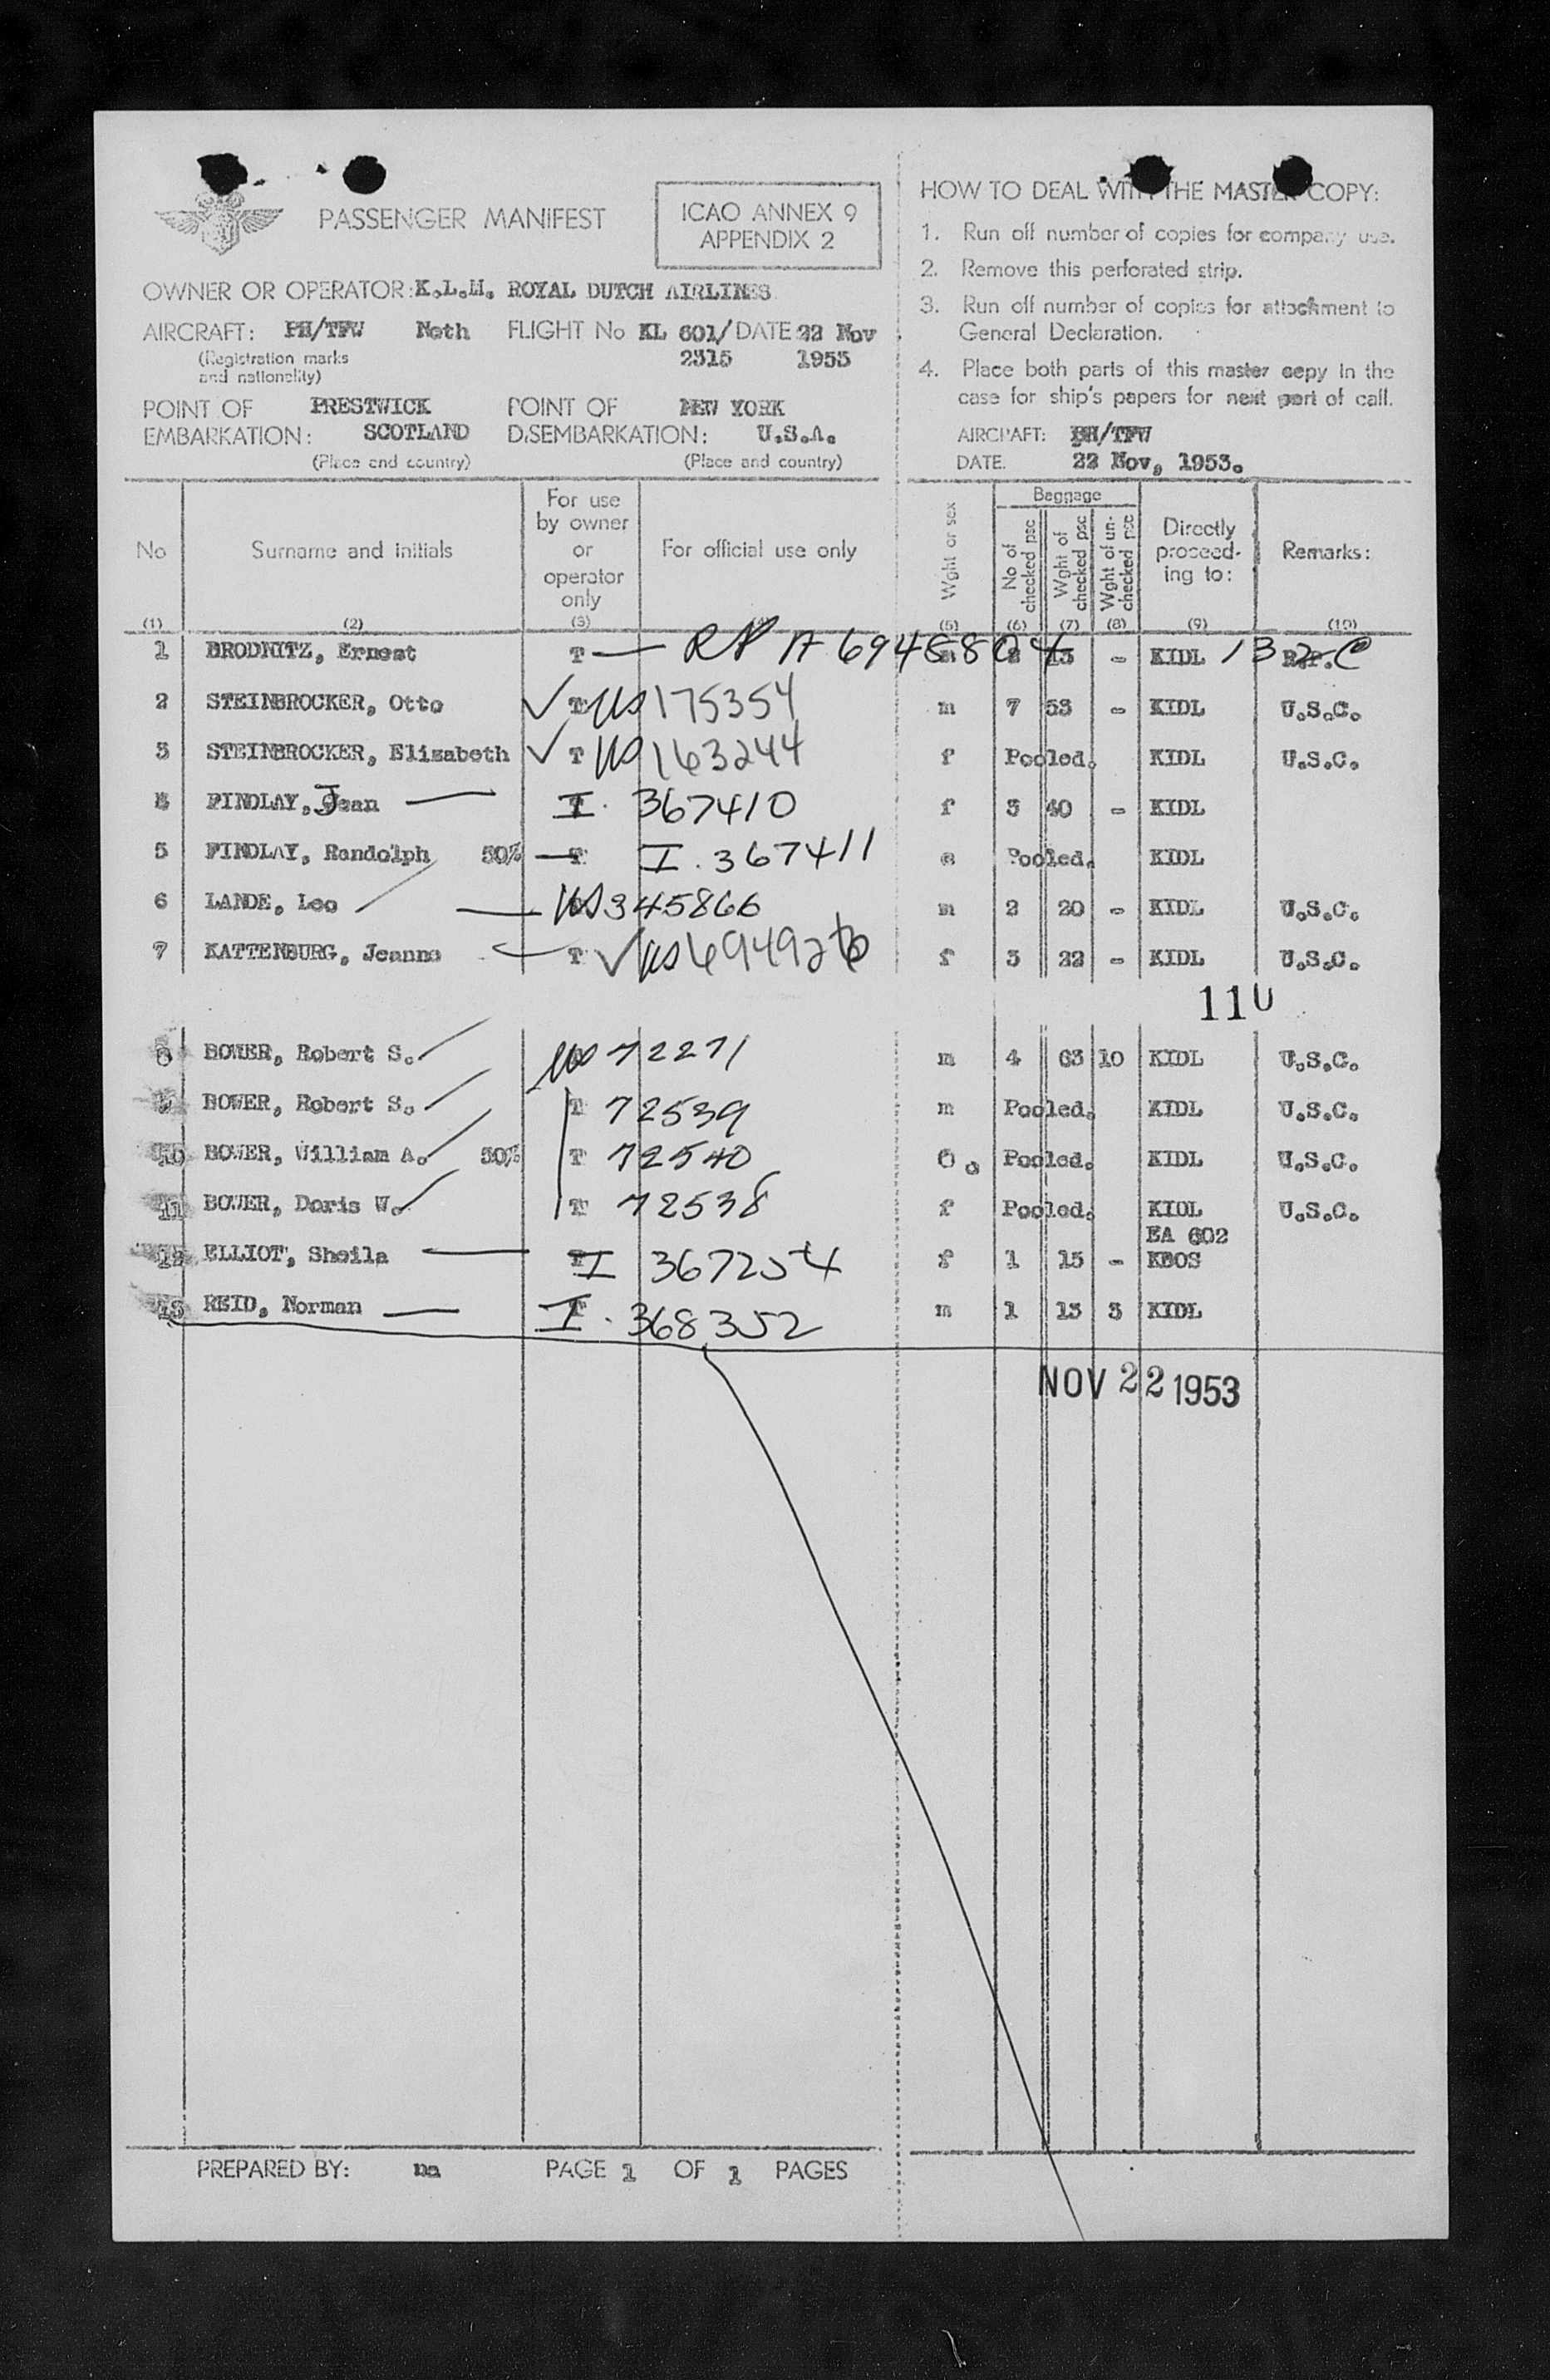 PASSENGER MANIFEST
ICAO ANNEX 9
APPENDIX 2
OWNER OR OPERATOR: K.L.M. ROYAL DUTCH AIRLINES
AIRCRAFT: PH/TFW Neth FLIGHT No KL 601/ DATE 22 Nov
(Registration marks 2315 1953
and nationality)
POINT OF PRESTWICK POINT OF NEW YORK
EMBARKATION: SCOTLAND DISEMBARKATION: U.S.A.
(Place and country) (Place and country)
HOW TO DEAL WITH THE MASTER COPY:
1. Run off number of copies for company use.
2. Remove this perforated strip.
3. Run off number of copies for attachment to
General Declaration.
4. Place both parts of this master copy in the
case for ship's papers for next port of call.
AIRCRAFT: PH/TFW
DATE. 22 Nov, 1953.
No Surname and initials For use by owner or operator only For official use only Wght or sex Baggage No of checked psc Wght of checked psc Wght of un-checked psc Directly proceed-ing to: Remarks:
(1) (2) (3) (5) (6) (7) (8) (9) (10)
1 BRODNITZ, Ernest T — RP A 6948804 13 - KIDL 132 C R.P.
2 STEINBROCKER, Otto ✓ T US 175354 m 7 53 - KIDL U.S.C.
3 STEINBROCKER, Elizabeth ✓ T US 163244 f Pooled. KIDL U.S.C.
4 FINDLAY, Jean — I. 367410 f 3 40 - KIDL
5 FINDLAY, Randolph 50% — T I. 367411 Pooled. KIDL
6 LANDE, Leo — US 345866 m 2 20 - KIDL U.S.C.
7 KATTENBURG, Jeanne T ✓ US f 3 22 - KIDL U.S.C.
110
8 BOWER, Robert S. US 72271 m 4 63 10 KIDL U.S.C.
9 BOWER, Robert S. T 72539 m Pooled. KIDL U.S.C.
10 BOWER, William A. 50% T 72540 Pooled. KIDL U.S.C.
11 BOWER, Doris W. T 72538 f Pooled. KIDL U.S.C.
EA 602
12 ELLIOT, Sheila — I 367254 f 1 15 - KBOS
13 REID, Norman — I. 368352 m 1 13 3 KIDL
NOV 22 1953
PREPARED BY: PAGE 1 OF 1 PAGES